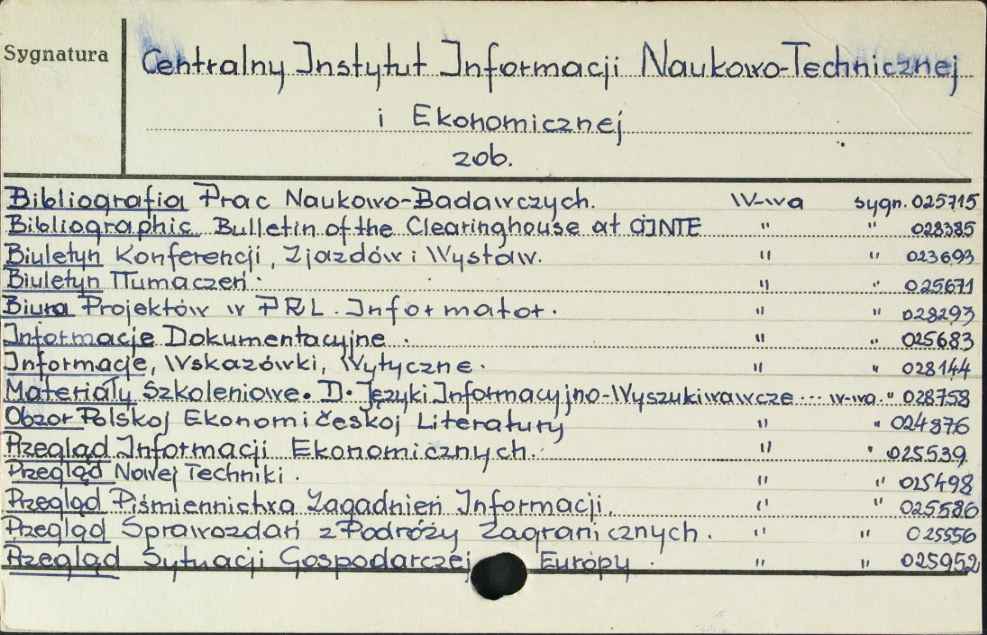 Sygnatura
Centralny Instytut Informacji Naukowo-Technicznej
i Ekonomicznej
zob.
Bibliografia Prac Naukowo-Badawczych. W-wa sygn. 025715
Bibliographic Bulletin of the Clearinghouse at CIINTE " " 028385
Biuletyn Konferencji, Zjazdów i Wystaw. " " 023693
Biuletyn Tłumaczeń. " " 025671
Biura Projektów w PRL. Informator. " " 028293
Informacje Dokumentacyjne. " " 025683
Informacje, Wskazówki, Wytyczne. " " 028144
Materiały Szkoleniowe. D. Języki Informacyjno-Wyszukiwawcze... W-wa " 028758
Obzor Polskoj Ekonomičeskoj Literatury " " 024876
Przegląd Informacji Ekonomicznych. " " 025539
Przegląd Nowej Techniki. " " 025498
Przegląd Piśmiennictwa Zagadnień Informacji. " " 025586
Przegląd Sprawozdań z Podróży Zagranicznych. " " 025556
Przegląd Sytuacji Gospodarczej Europy. " " 025952